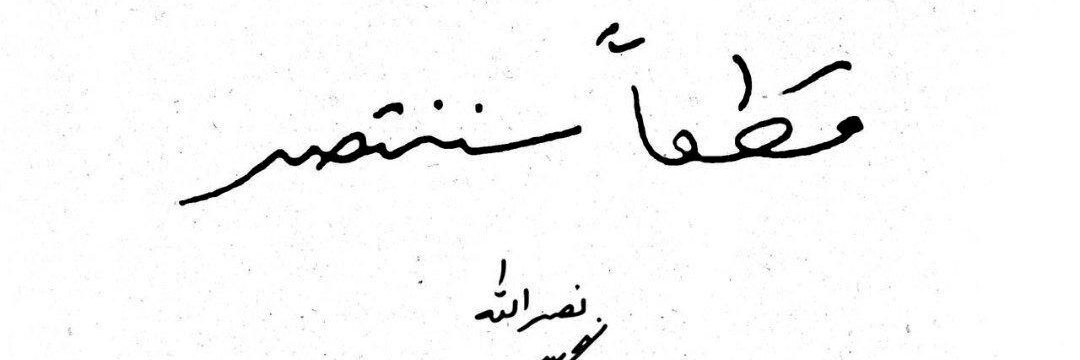 قطعاً سننتصر
نصرالله